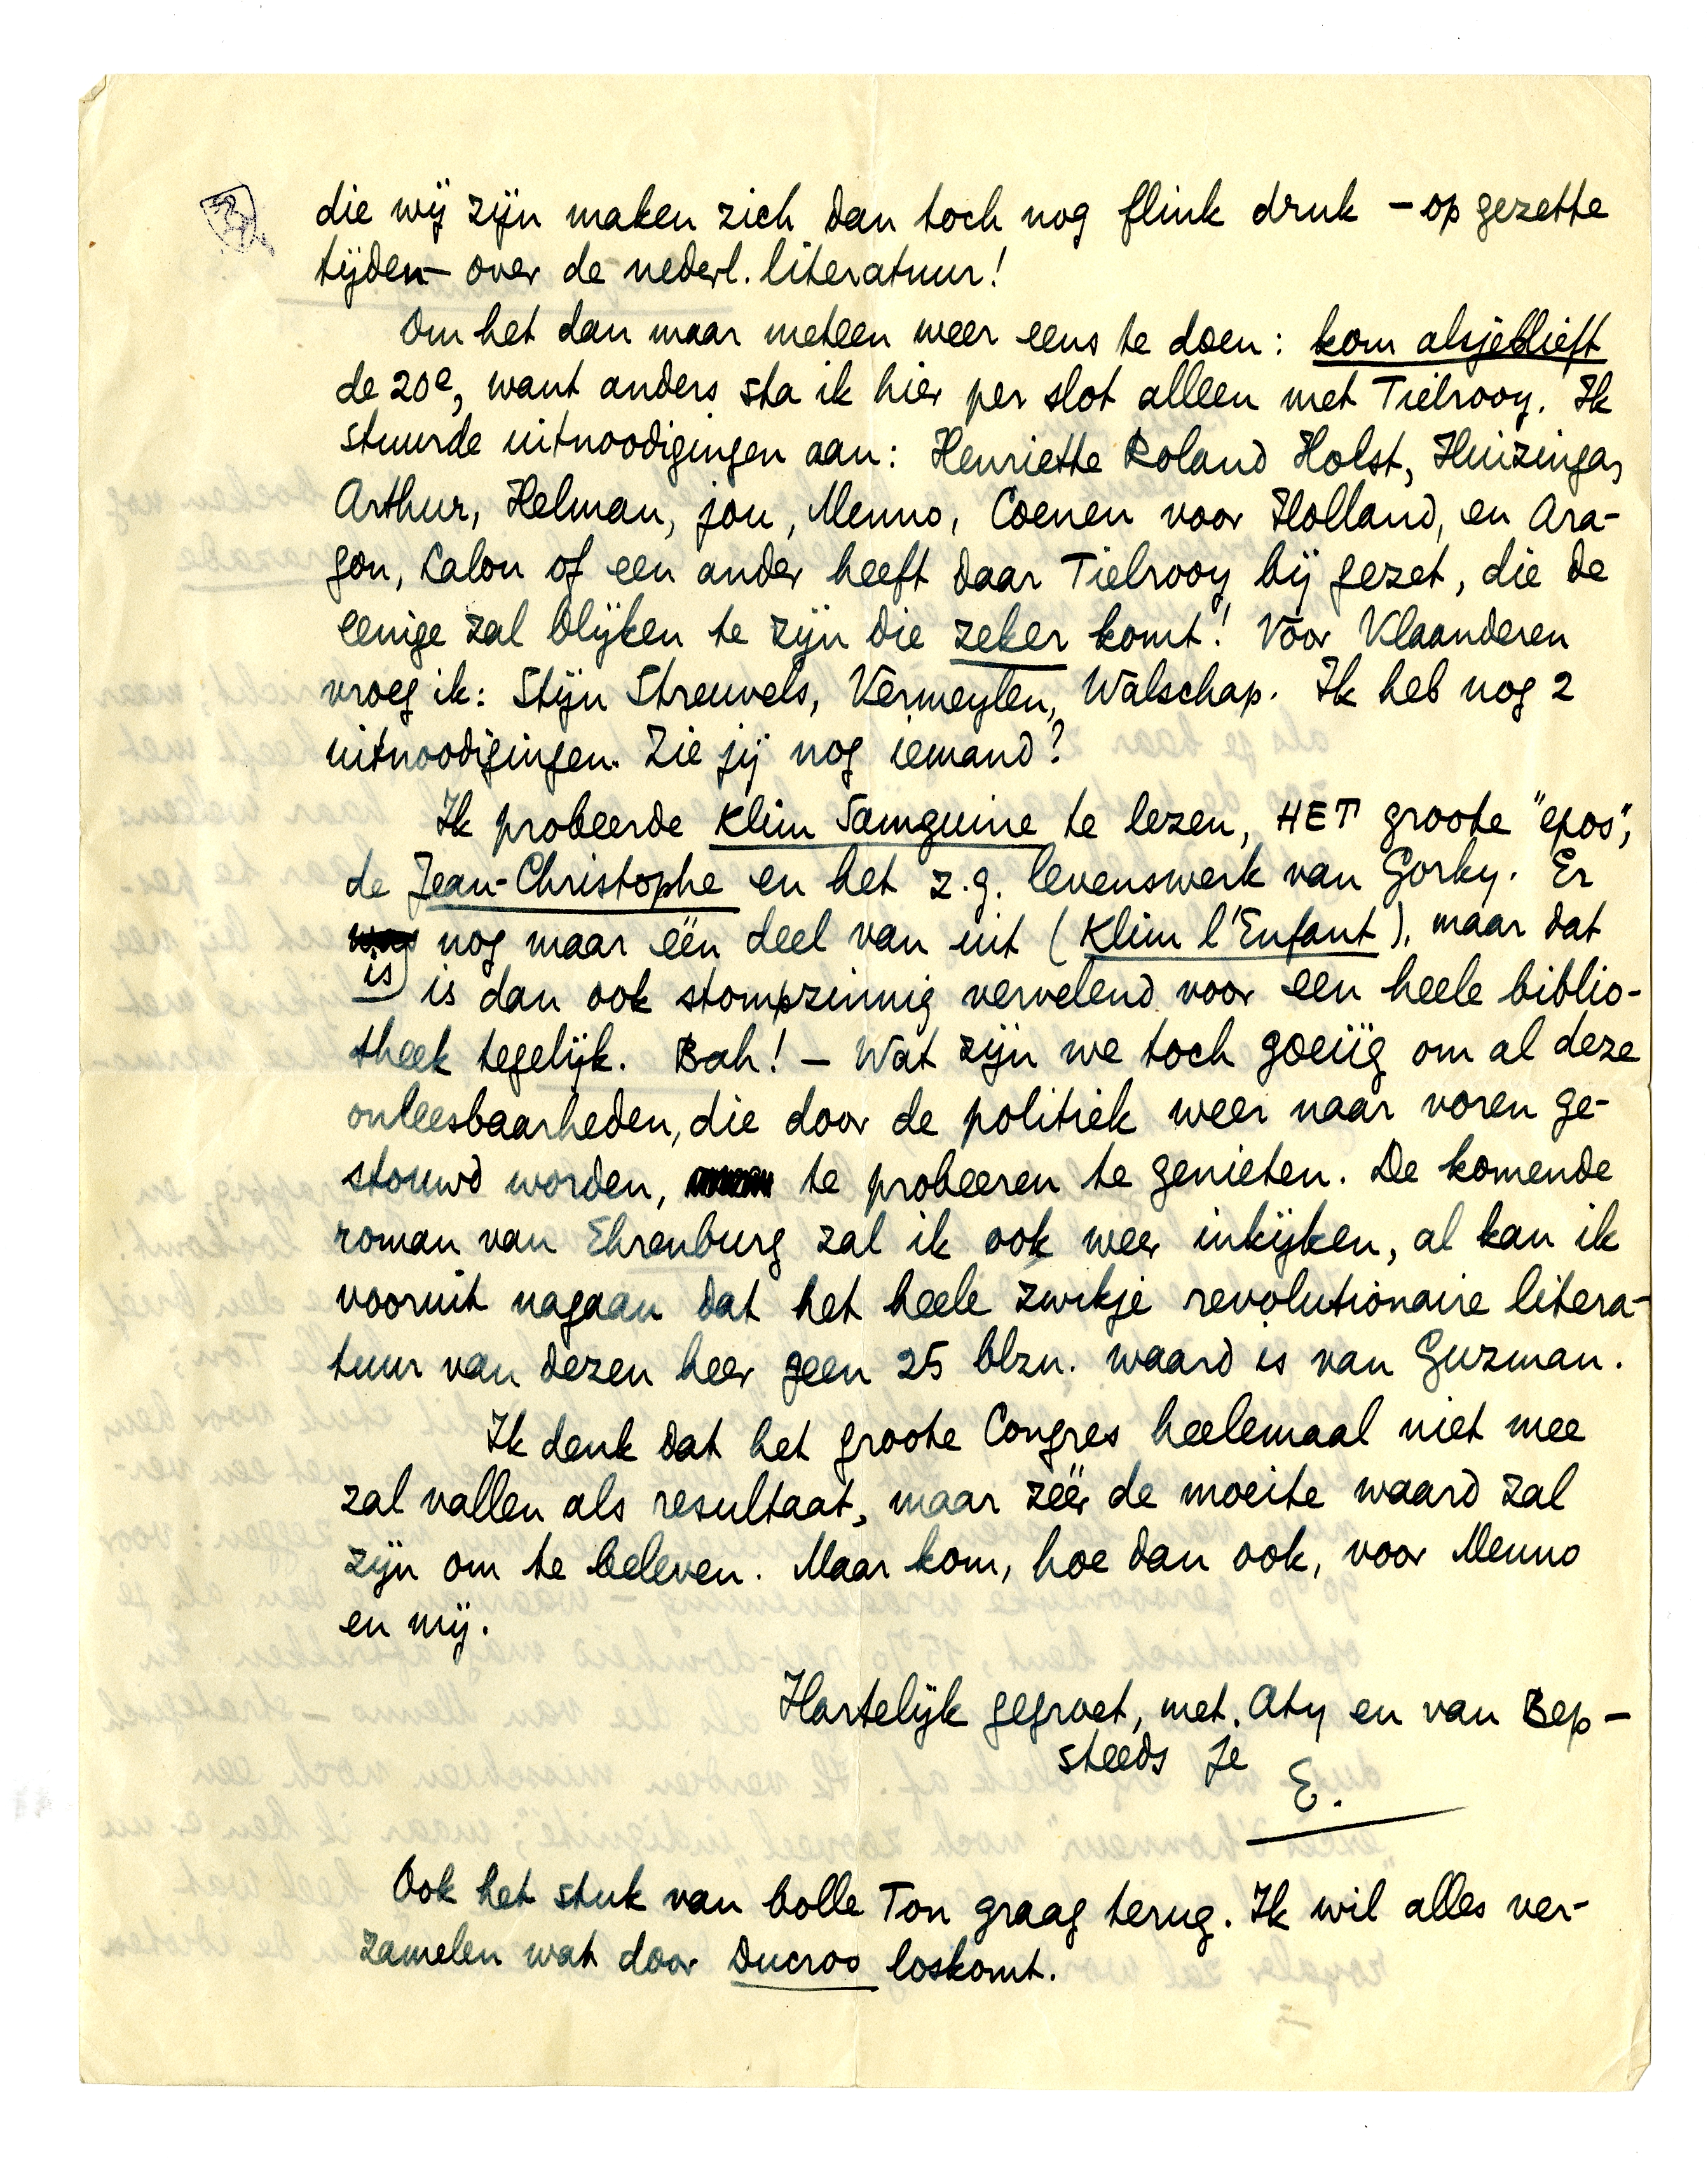 die wij zijn maken zich dan toch nog flink druk – op gezette
tijden – over de nederl. literatuur!
Om het dan maar meteen weer eens te doen: kom alsjeblieft
de 20e, want anders sta ik hier per slot alleen met Tielrooy. Ik
stuurde uitnoodigingen aan: Henriette Roland Holst, Huizinga,
Arthur, Helman, jou, Menno, Coenen voor Holland, en Ara-
gon, Lalou of een ander heeft daar Tielrooy bij gezet, die de
eenige zal blijken te zijn die zeker komt! Voor Vlaanderen
vroeg ik: Stijn Streuvels, Vermeylen, Walschap. Ik heb nog 2
uitnoodigingen. Zie jij nog iemand?
Ik probeerde Klim Samguine te lezen, HET groote "epos",
de Jean-Christophe en het z.g. levenswerk van Gorky. Er
is nog maar één deel van uit (Klim l'Enfant), maar dat
is dan ook stompzinnig vervelend voor een heele biblio-
theek tegelijk. Bah! – Wat zijn we toch goeiïg om al deze
onleesbaarheden, die door de politiek weer naar voren ge-
stouwd worden, te probeeren te genieten. De komende
roman van Ehrenburg zal ik ook weer inkijken, al kan ik
vooruit nagaan dat het heele zwikje revolutionaire litera-
tuur van dezen heer geen 25 blzn. waard is van Guzman.
Ik denk dat het groote Congres heelemaal niet mee
zal vallen als resultaat, maar zéér de moeite waard zal
zijn om te beleven. Maar kom, hoe dan ook, voor Menno
en mij.
Hartelijk gegroet, met Aty en van Bep –
steeds je
E.
Ook het stuk van bolle Ton graag terug. Ik wil alles ver-
zamelen wat door Ducroo loskomt.